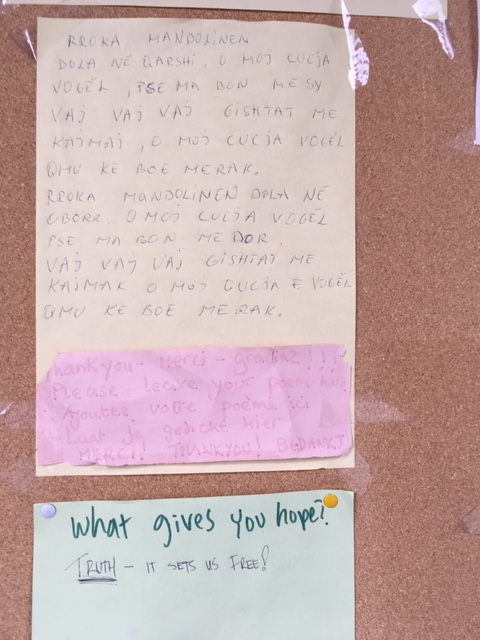 RROKA MANDOLINEN
DOLA NË QARSHI, O MOJ CUCJA
VOGËL, PSE MA BON ME SY
VAJ VAJ VAJ GISHTAT ME
KAJMAJ, O MOJ CUCJA VOGËL
QMU KE BOE MERAK.
RROKA MANDOLINEN DOLA NË
OBORR. O MOJ CUCJA VOGËL
PSE MA BON ME DOR.
VAJ VAJ VAJ GISHTAT ME
KAJMAK O MOJ CUCJA E VOGËL
QMU KE BOE MERAK.
Thank you - Merci - graciaz!!!
Please leave your poem here
Ajoutez votre poème ici
Laat je gedicht hier
MERCI! THANKYOU! BEDANKT
What gives you hope?
TRUTH - IT SETS US FREE!